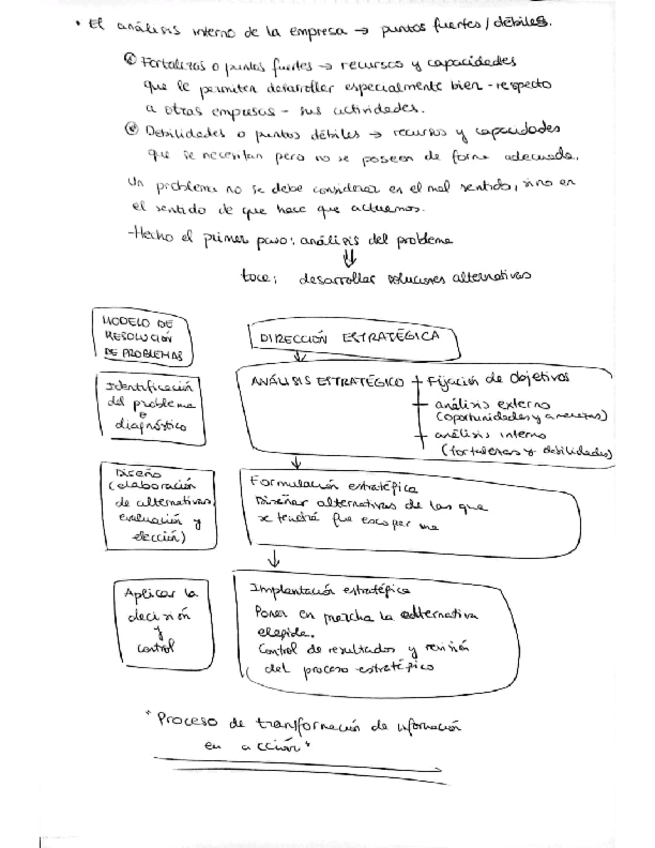 • El análisis interno de la empresa → puntos fuertes / débiles.
Fortalezas o puntos fuertes → recursos y capacidades
que le permiten desarrollar especialmente bien - respecto
a otras empresas - sus actividades.
Debilidades o puntos débiles → recursos y capacidades
que se necesitan pero no se poseen de forma adecuada.
Un problema no se debe considerar en el mal sentido, sino en
el sentido de que hace que actuemos.
-Hecho el primer paso: análisis del problema
⇓
toca: desarrollar soluciones alternativas
MODELO DE
RESOLUCIÓN
DE PROBLEMAS
DIRECCIÓN ESTRATÉGICA
Identificación
del problema
e
diagnóstico
ANÁLISIS ESTRATÉGICO + Fijación de objetivos
+ análisis externo
(oportunidades y amenazas)
+ análisis interno
(fortalezas y debilidades)
Diseño
(elaboración
de alternativas,
evaluación y
elección)
Formulación estratégica
Diseñar alternativas de las que
se tendrá que escoger una
Aplicar la
decisión
y
control
Implantación estratégica
Poner en marcha la alternativa
elegida.
Control de resultados y revisión
del proceso estratégico
"Proceso de transformación de información
en acción"